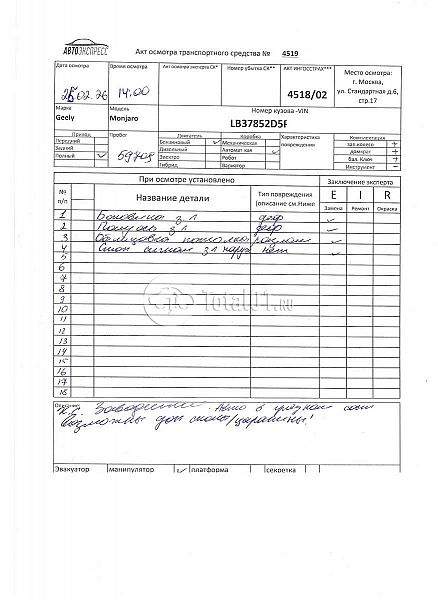 АВТОЭКСПРЕСС
Акт осмотра транспортного средства № 4519
Дата осмотра Время осмотра Акт осмотра эксперта СК* Номер убытка СК** АКТ ИНГОССТРАХ***
Место осмотра:
г. Москва,
ул. Стандартная д.6,
стр.17
02.26 14.00 4518/02
Марка Модель Номер кузова -VIN
Geely Monjaro LB37852D5F
Привод Пробег Двигатель Коробка Характеристика повреждения Комплектация
Передний Бензиновый ✓ Механическая зап.колесо +
Задний Дизельный Автомат кая ✓ домкрат +
Полный ✓ 59708 Электро Робот бал. Ключ +
Гибрид Вариатор Инструмент -
При осмотре установлено Заключение эксперта
№ п/п Название детали Тип повреждения (описание см.Ниже E I R
Замена Ремонт Окраска
1 Боковина з л деф ✓
2 з л деф ✓
3 Обшивка потолка ✓
4 Стоп сигнал з л наруж нет ✓
5
6
7
8
9
10
11
12
13
14
15
16
17
18
Total01.RU
Описание:
Авто в грязном сост
Возможны доп сколы/царапины!
Эвакуатор манипулятор ✓ платформа секретка